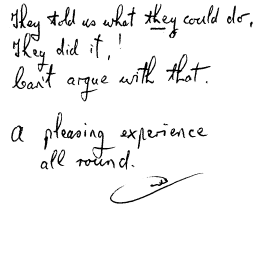 They told us what they could do,
They did it,!
Can't argue with that.
A pleasing experience
all round.